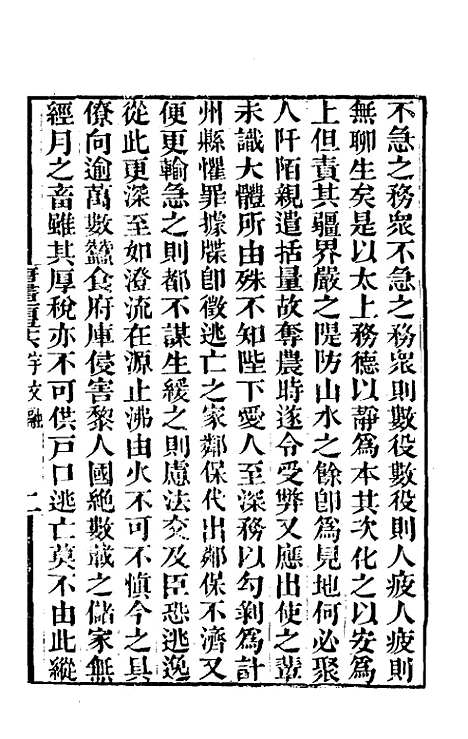 不急之務衆不急之務衆則數役數役則人疲人疲則
無聊生矣是以太上務德以靜爲本其次化之以安爲
上但責其疆界嚴之隄防山水之餘卽爲見地何必聚
人阡陌親遣括量故奪農時遂令受弊又應出使之輩
未識大體所由殊不知陛下愛人至深務以勾剝爲計
州縣懼罪據牒卽徵逃亡之家鄰保代出鄰保不濟又
便更輸急之則都不謀生緩之則慮法交及臣恐逃逸
從此更深至如澄流在源止沸由火不可不愼今之具
僚向逾萬數蠶食府庫侵害黎人國絶數載之儲家無
經月之畜雖其厚稅亦不可供戶口逃亡莫不由此縱
宇文融 二